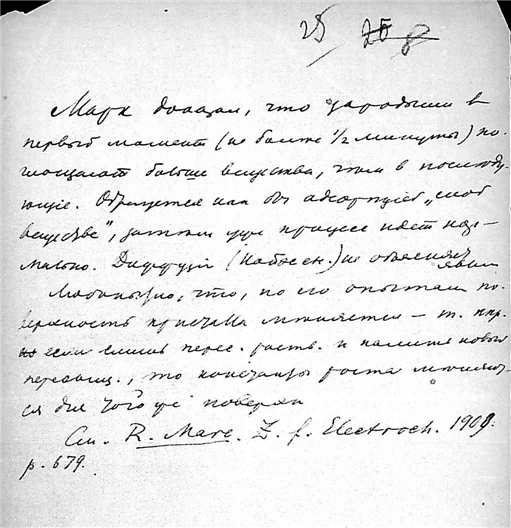 25 25 8
Марк доказал, что зародыши в
первый момент (не более 1/2 минуты) по-
глощают больше вещества, чем в последу-
ющие. Образуется как бы адсорпцiей „слой
вещества", затем уже процесс идет нор-
мально. Диффузiй не объясняет
явлен
Любопытно, что, по его опытам по-
верхность кристалла меняется — т. напр.
если слить перес. раств. и налить новый
пересыщ., то константы роста меняют-
ся для того же поверхн
См. R. Marc. Z. f. Electroch. 1909.
p. 679.